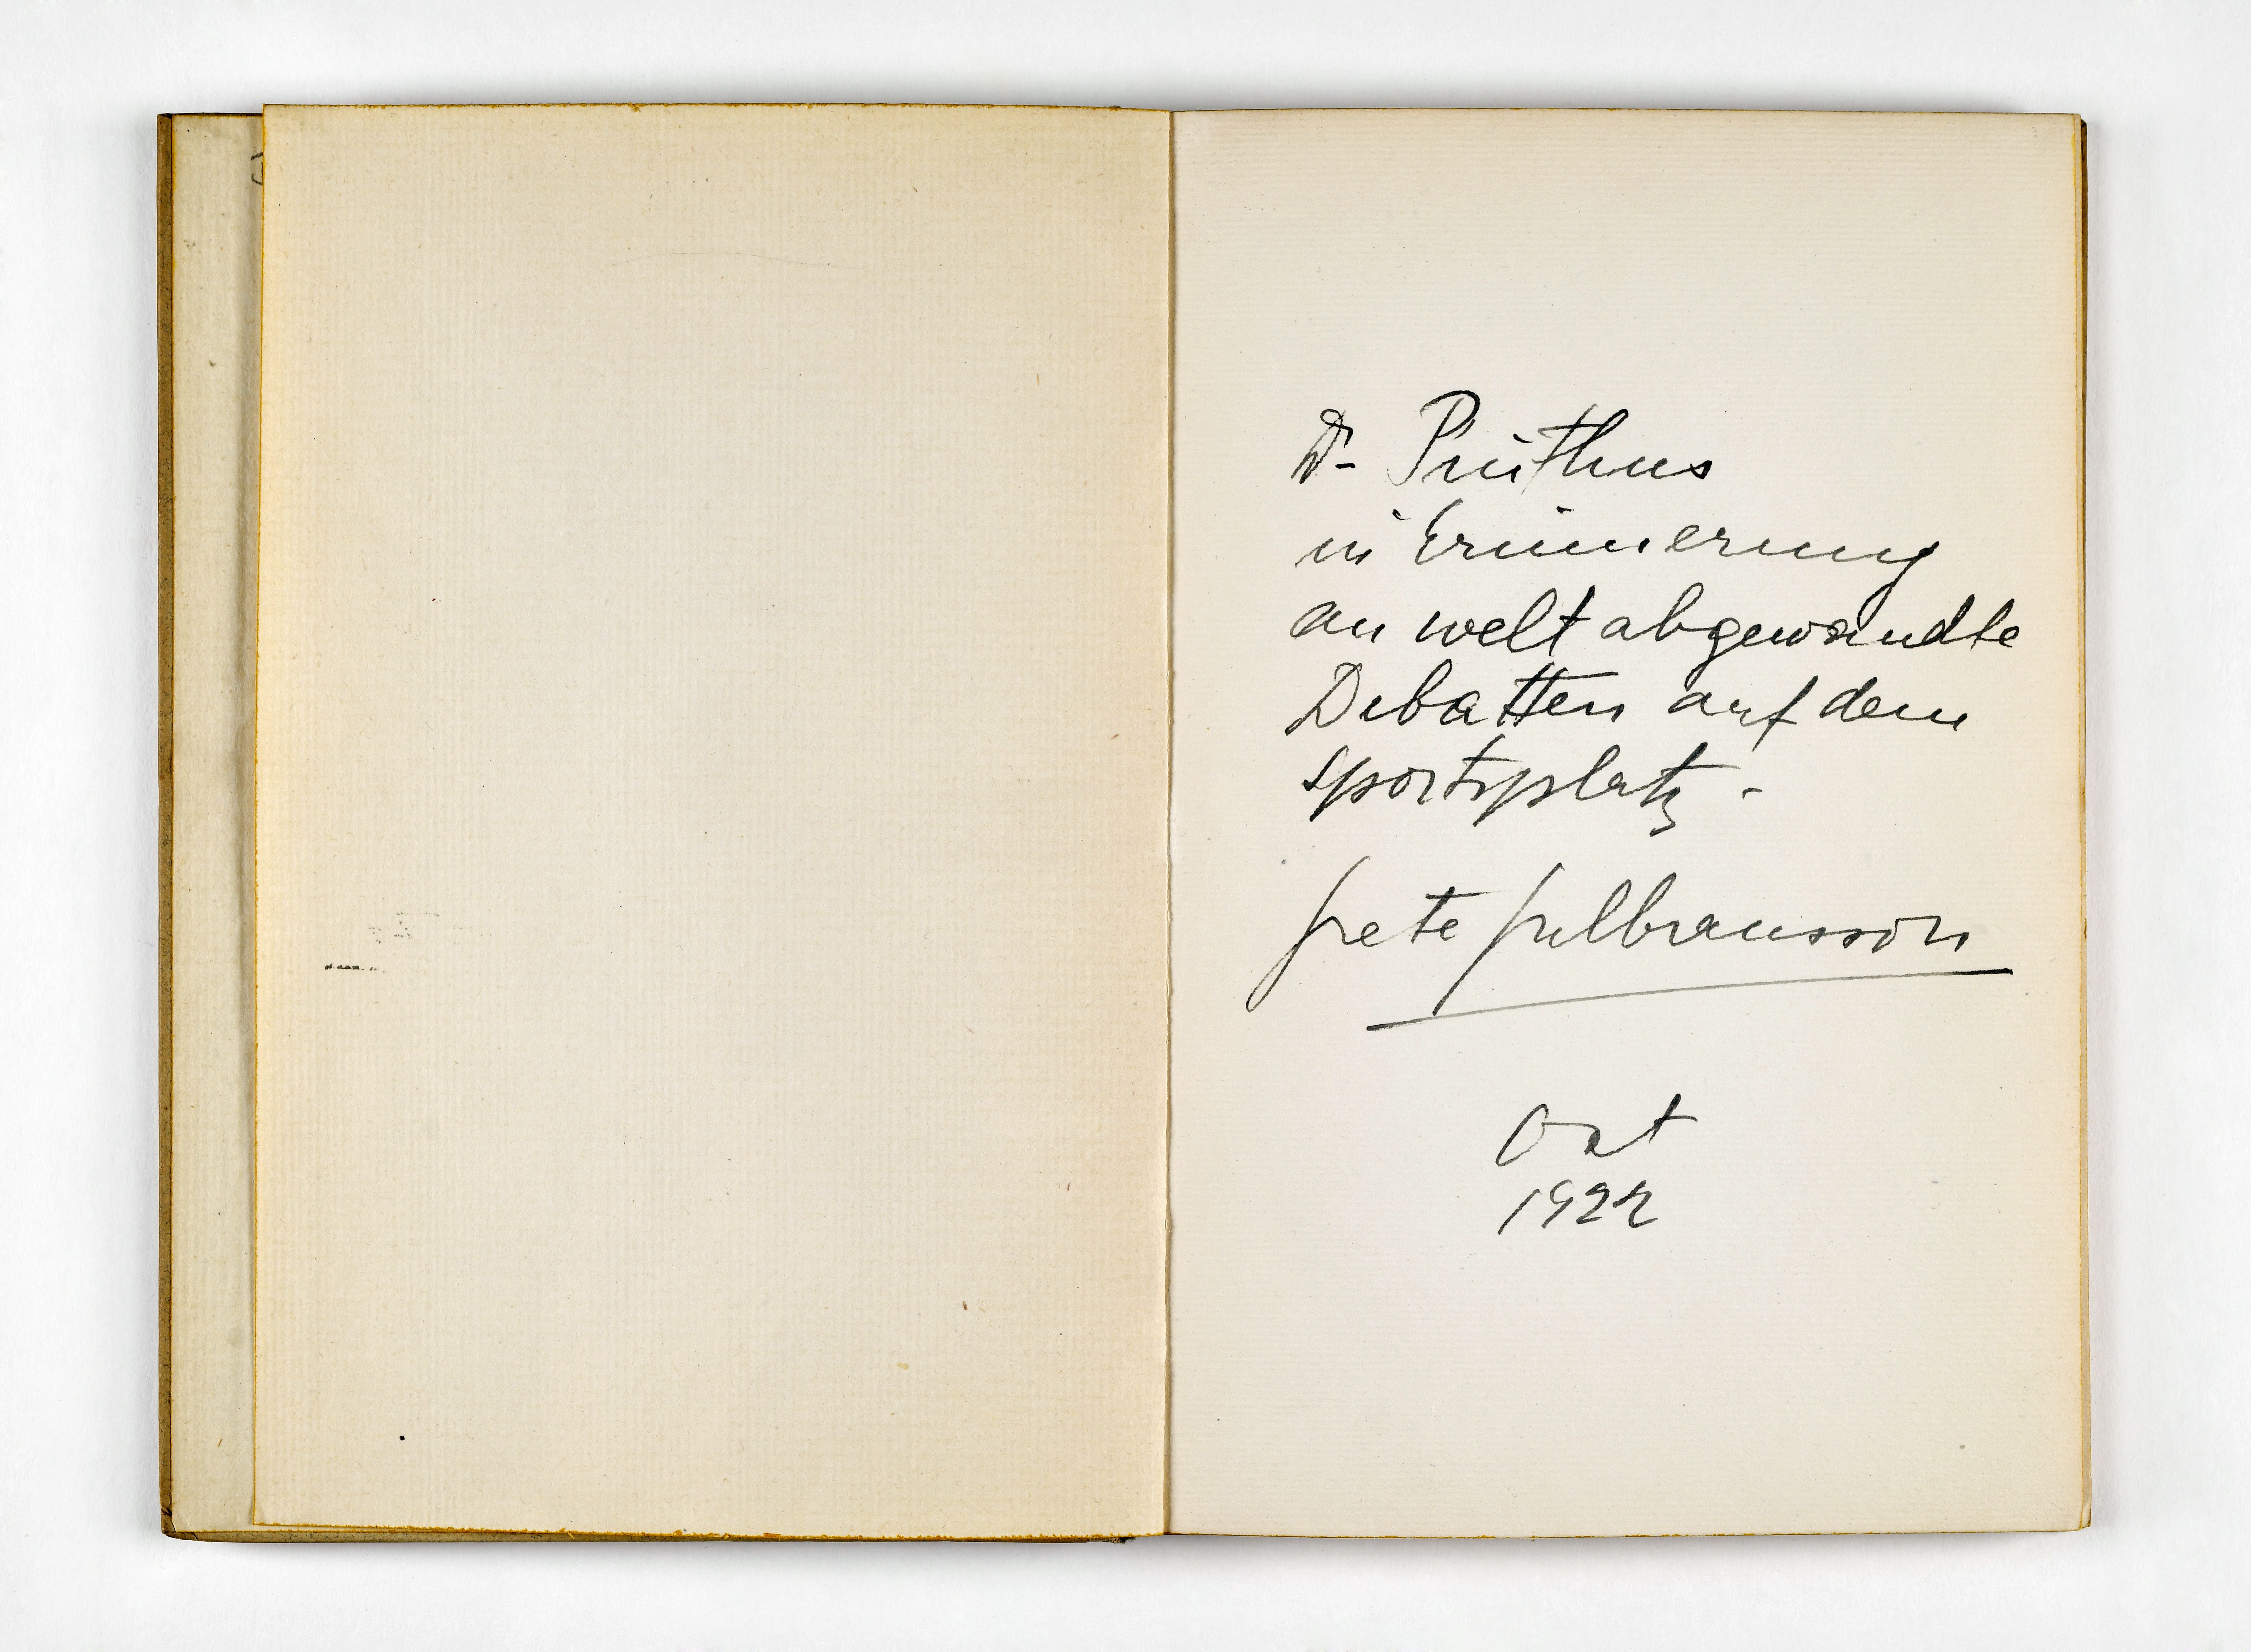 Dr. Pinthus
in Erinnerung
an welt abgewandte
Debatten auf dem
Sportsplatz -
Grete Gulbransson
Oct
1922